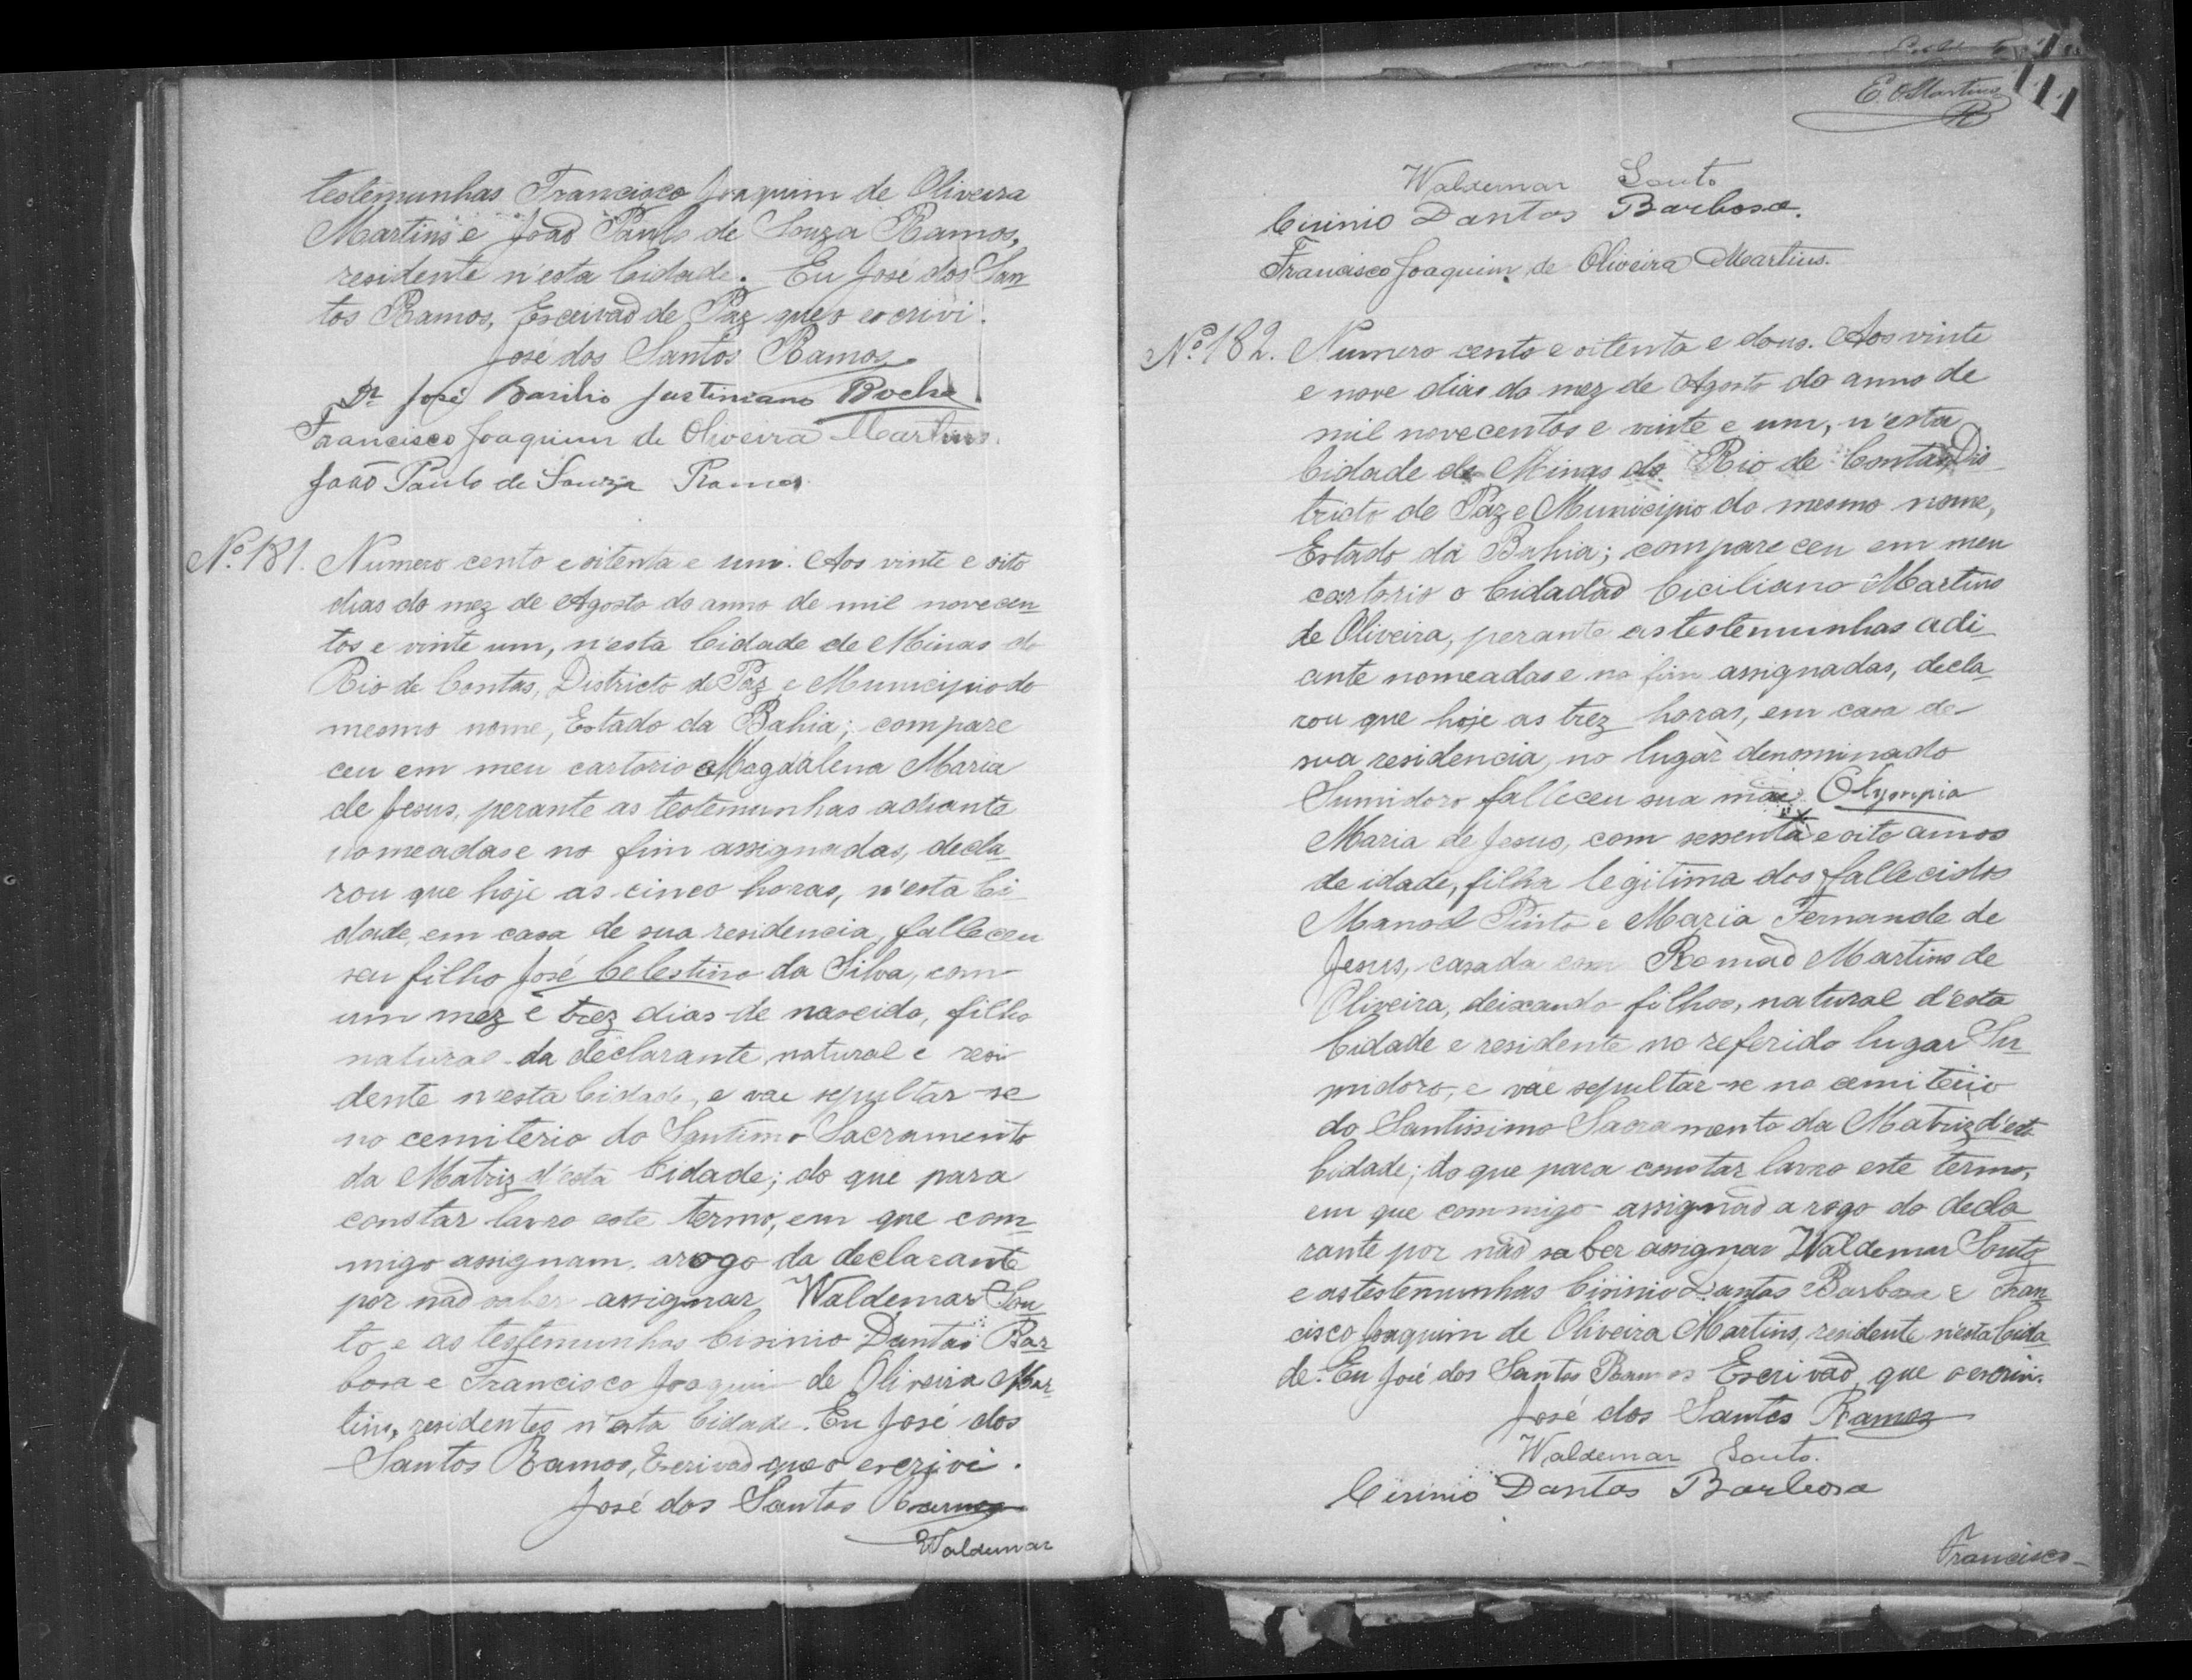 testemunhas Francisco Joaquim de Oliveira
Martins e João Paulo de Souza Ramos,
residente n'esta Cidade. Eu José dos San
tos Ramos, Escrivaõ de Paz que o escrivi.
José dos Santos Ramos
Dr José Basilio Justiniano Rocha
Francisco Joaquim de Oliveira Martins.
João Paulo de Souza Ramos
Nº 181. Numero cento e oitenta e um. Aos vinte e oito
dias do mez de Agosto do anno de mil novecen
tos e vinte um, n'esta Cidade de Minas do
Rio de Contas, Districto de Paz e Municipio do
mesmo nome, Estado da Bahia; compare
ceu em meu cartorio Magdalena Maria
de Jesus, perante as testemunhas adiante
nomeadas e no fim assignadas, decla
rou que hoje as cinco horas, n'esta Ci
dade, em casa de sua residencia, falleceu
seu filho José Celestino da Silva, com
um mez e trez dias de nascido, filho
natural da declarante, natural e resi
dente n'esta Cidade, e vae sepultar-se
no cemiterio do Santimo Sacramento
da Matriz d'esta Cidade; do que para
constar lavro este termo, em que com
migo assignam, arogo da declarante
por naõ saber assignar Waldemar Sou
to e as testemunhas Cirinio Dantas Bar
bosa e Francisco Joaquim de Oliveira Mar
tins, residentes n'esta Cidade. Eu José dos
Santos Ramos, Escrivaõ que o escrivi.
José dos Santos Ramos
Waldemar
E. O. Martins
111
Waldemar Souto
Cirinio Dantas Barbosa.
Francisco Joaquim de Oliveira Martins.
Nº 182. Numero cento e oitenta e dous. Aos vinte
e nove dias do mez de Agosto do anno de
mil novecentos e vinte e um, n'esta
Cidade de Minas do Rio de Contas, Dis
tricto de Paz e Municipio do mesmo nome,
Estado da Bahia; compareceu em meu
cartorio o Cidadaõ Ciciliano Martins
de Oliveira, perante as testemunhas adi
ante nomeadas e no fim assignadas, decla
rou que hoje as trez horas, em casa de
sua residencia, no lugar denominado
Sumidoro falleceu sua mae Olympia
Maria de Jesus, com sessenta e oito annos
de idade, filha legitima dos fallecidos
Manoel Pinto e Maria Fernande de
Jesus, casada com Romaõ Martins de
Oliveira, deixando filhos, natural d'esta
Cidade e residente no referido lugar Su
midoro, e vae sepultar-se no cemiterio
do Santissimo Sacramento da Matriz d'esta
Cidade; do que para constar lavro este termo,
em que commigo assignaõ a rogo do decla
rante por naõ saber assignar Waldemar Souto
e as testemunhas Cirinio Dantas Barbosa e Fran
cisco Joaquim de Oliveira Martins, residente n'esta Cida
de. Eu José dos Santos Ramos Escrivaõ, que o escrivi.
José dos Santos Ramos
Waldemar Souto.
Cirinio Dantas Barbosa
Francisco